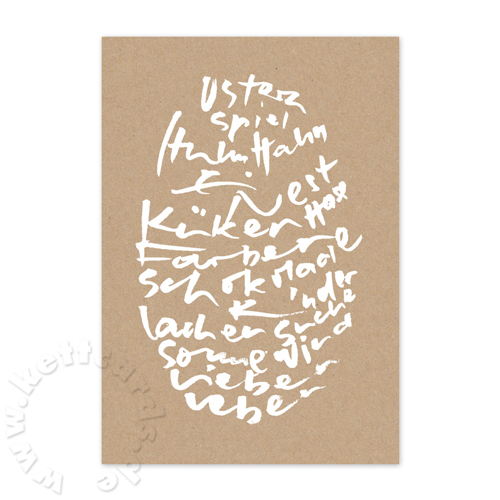 Oster
spiel
Huhn Hahn
Ei Nest
Küken Hase
Farben
Schokolade
Kinder
lachen Suche
Sonne Wind
Lieben
Leben
www.kettcards.de